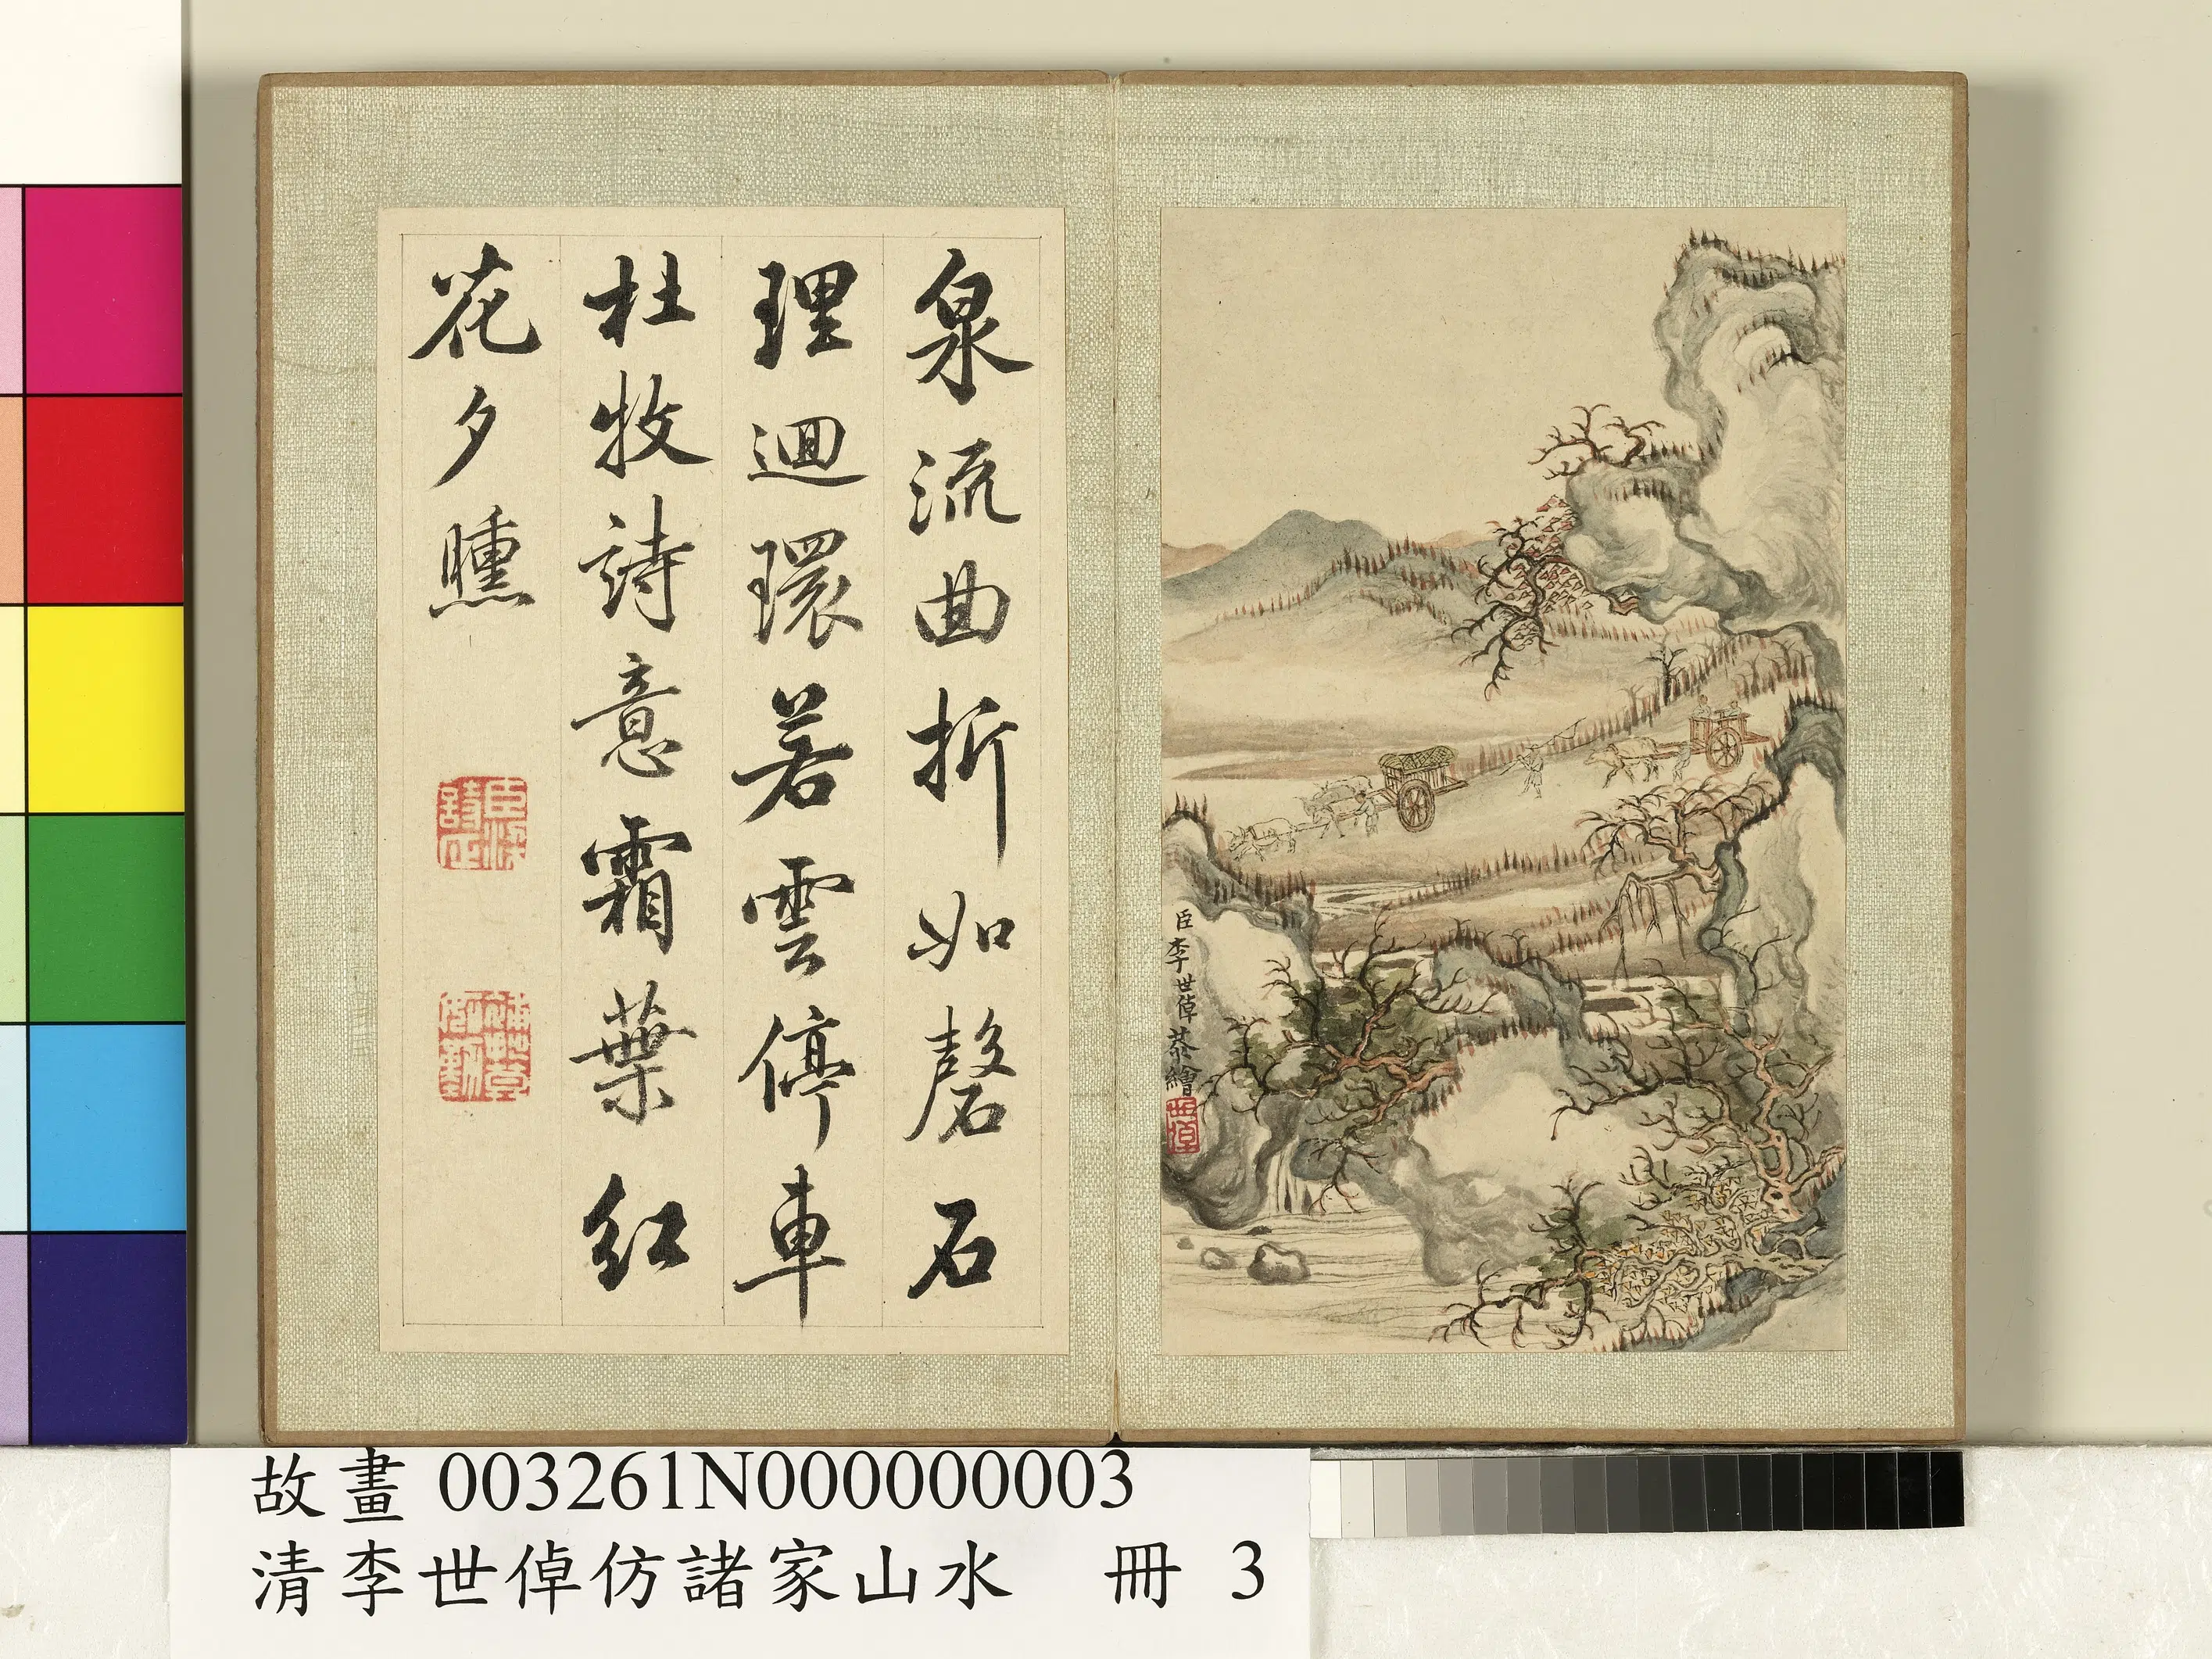 泉流曲折如磬石
理迴環若雲停車
杜牧詩意霜葉紅
花夕曛
臣李世倬恭繪
世倬
故畫 003261N000000003
清李世倬仿諸家山水 冊 3